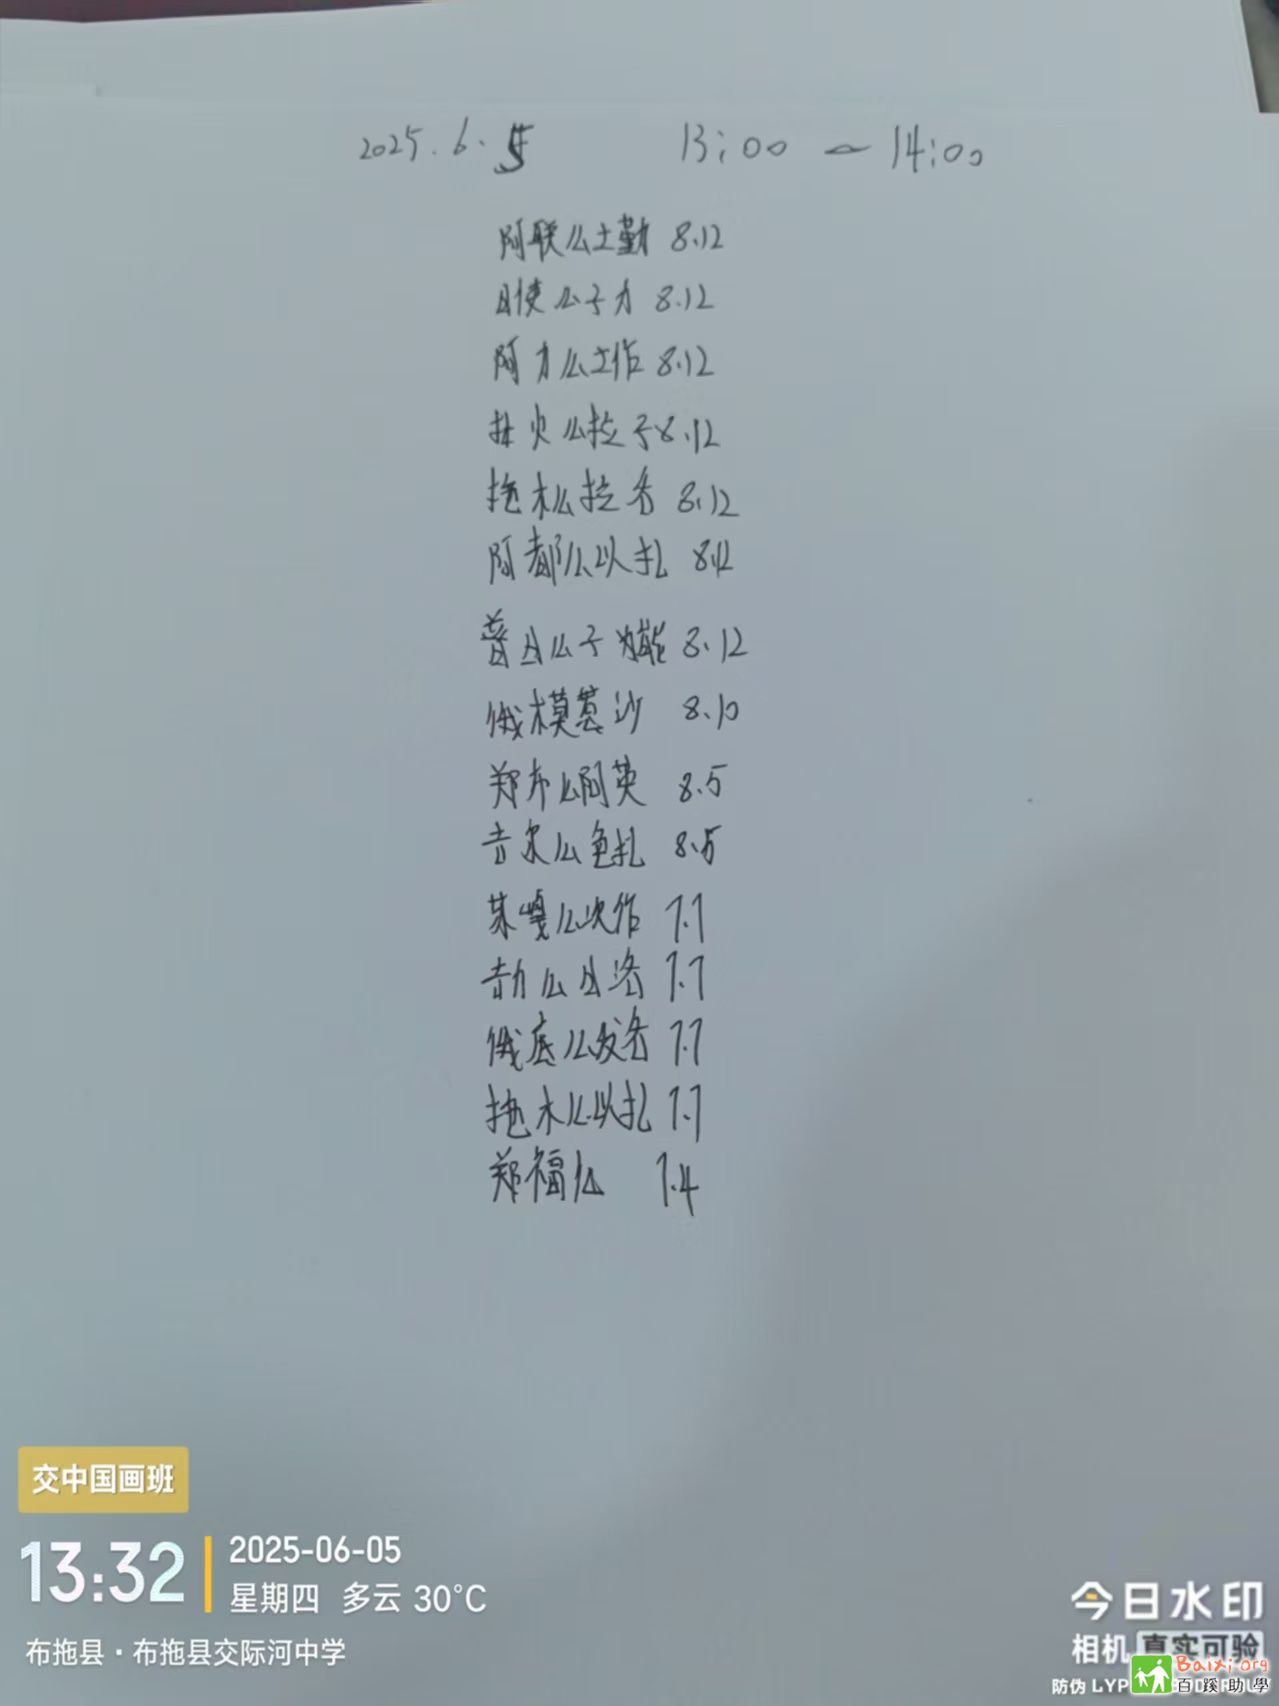 2025.6.5 13:00 — 14:00
阿联么土勤 8.12
日使么子力 8.12
阿力么土作 8.12
火么拉子 8.12
拖木么拉各 8.12
阿都么以扎 8.12
普日么子 8.12
俄木莫莫沙 8.10
郑布么阿英 8.5
吉尔么鱼扎 8.5
某嘎么次作 7.7
吉力么日洛 7.7
俄底么发各 7.7
拖木么以扎 7.7
郑福么 7.4
交中国画班
13:32
2025-06-05
星期四 多云 30°C
布拖县·布拖县交际河中学
今日水印
相机 真实可验
防伪
Baixi.org
百蹊助學